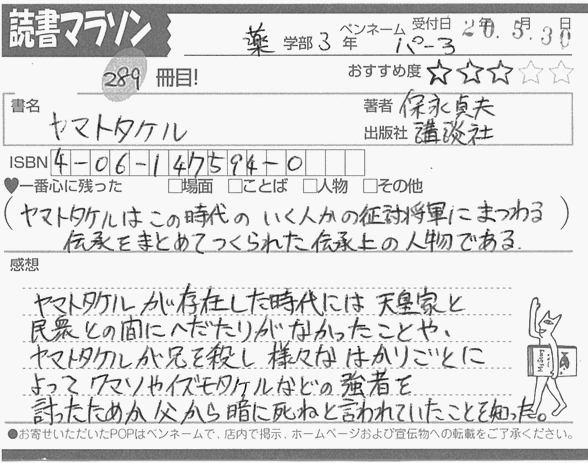 読書マラソン
薬 学部 3 年 ペンネーム パー3 受付日 20年5月30日
289 冊目! おすすめ度 ☆☆☆☆☆
書名 ヤマトタケル
著者 保永貞夫
出版社 講談社
ISBN 4-06-147594-0
♥一番心に残った □場面 □ことば □人物 □その他
(ヤマトタケルはこの時代の いく人かの征討将軍にまつわる)
伝承をまとめてつくられた伝承上の人物である.
感想
ヤマトタケルが存在した時代には 天皇家と
民衆との間にへだたりがなかったことや、
ヤマトタケルが兄を殺し 様々な はかりごとに
よって クマソやイズモタケルなどの 強者を
討ったためか 父から暗に死ねと言われていたことを知った。
●お寄せいただいたPOPはペンネームで、店内で掲示、ホームページおよび宣伝物への転載をご了承ください。